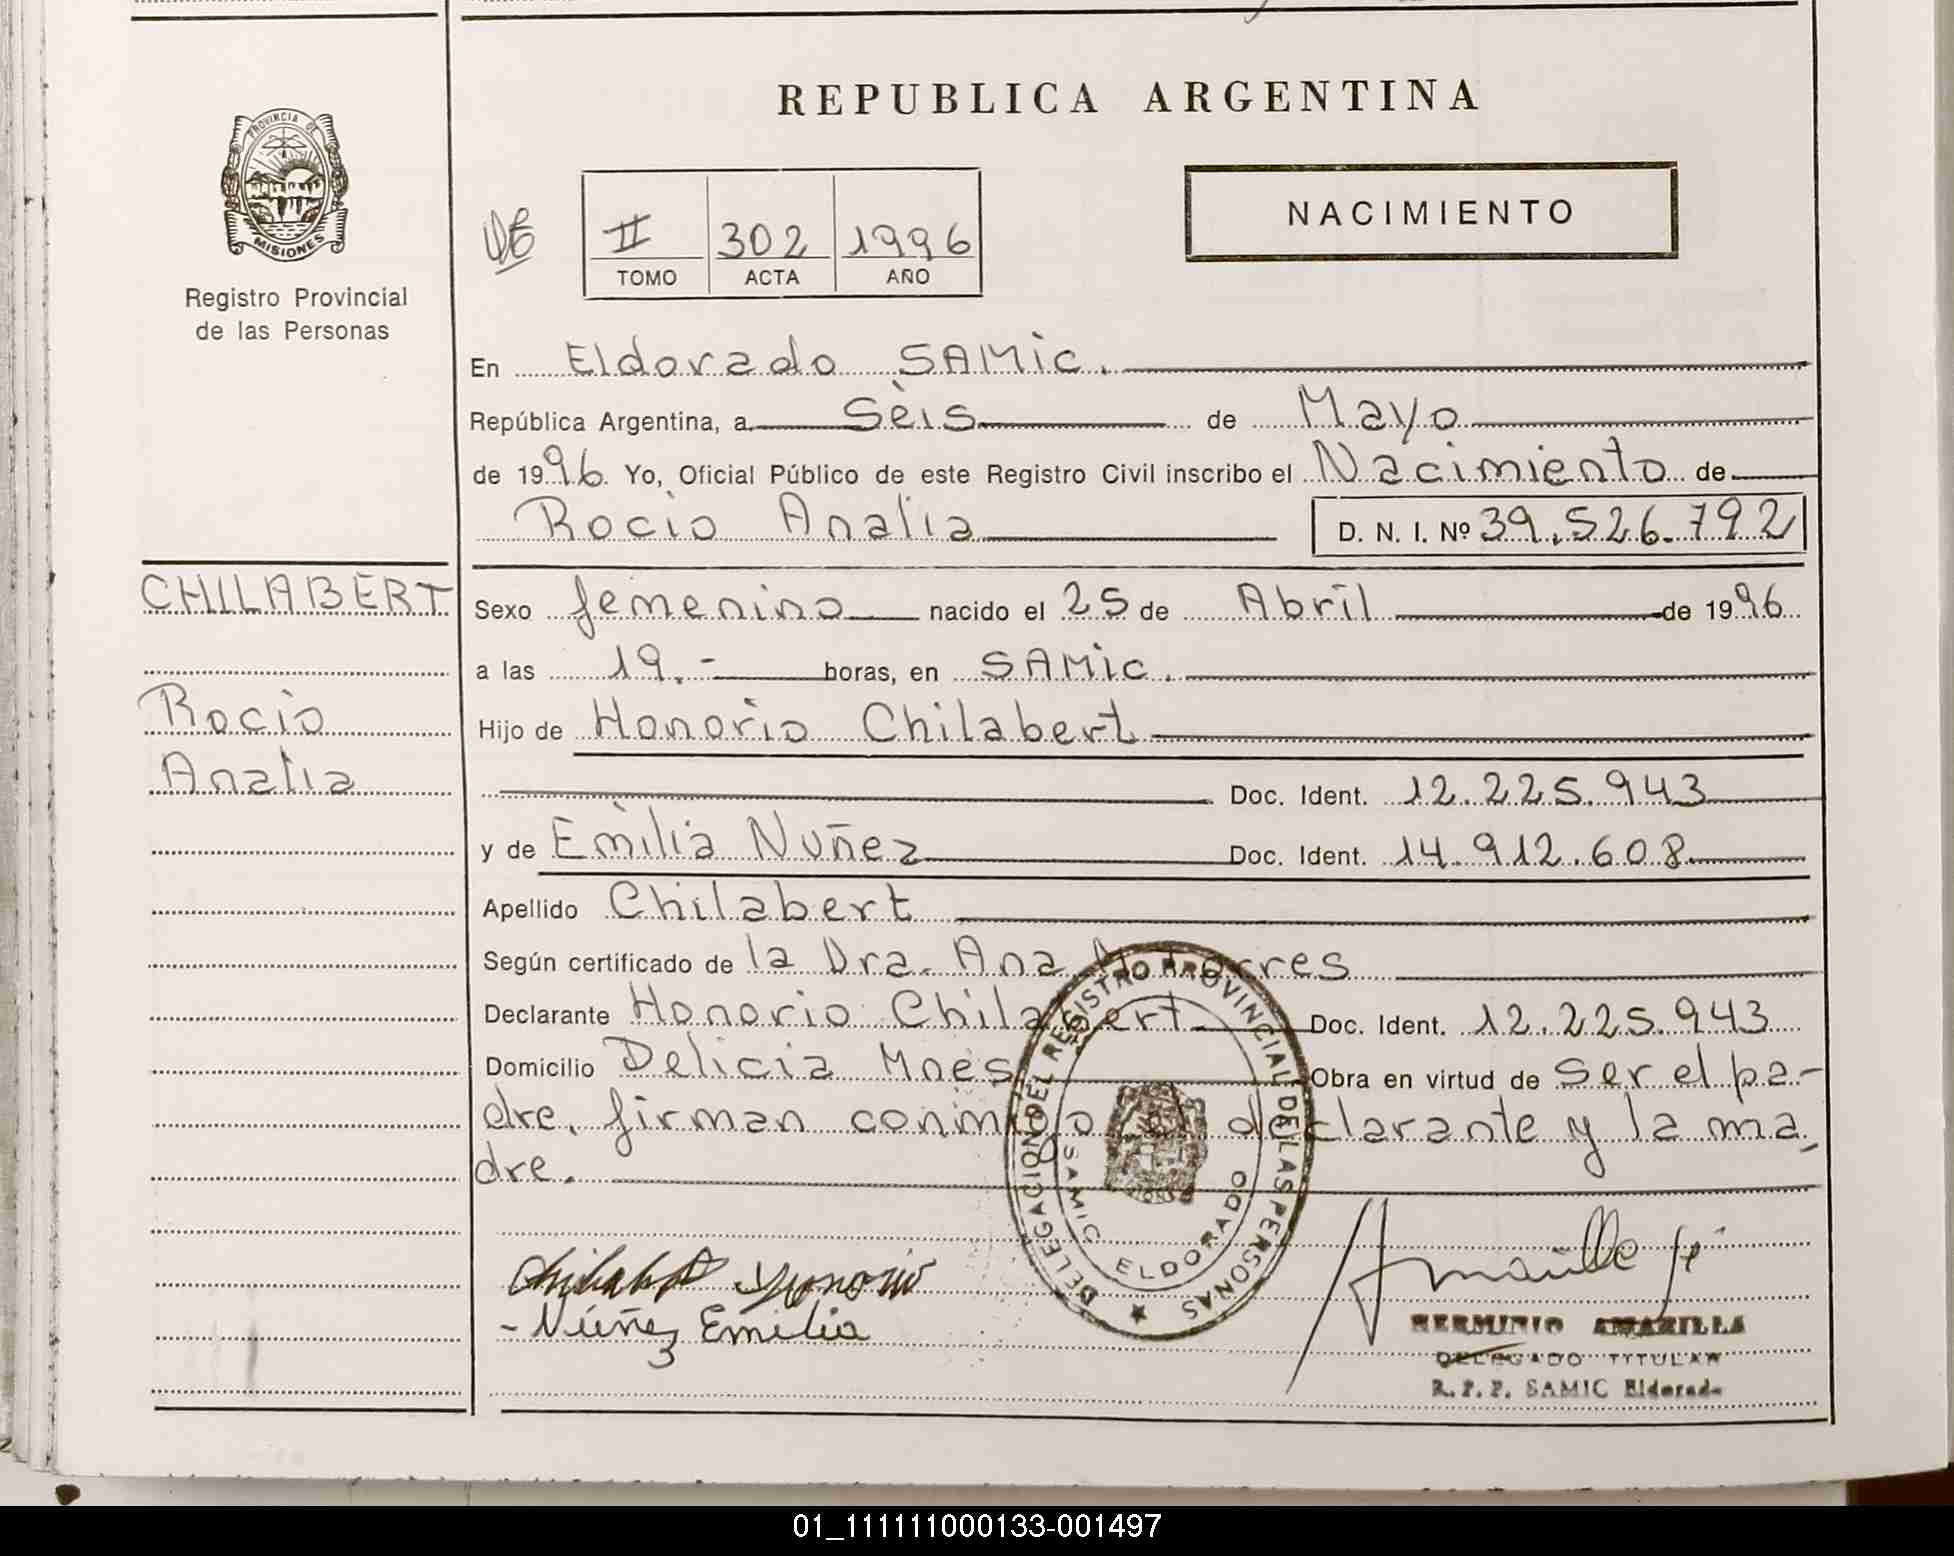 REPUBLICA ARGENTINA
PROVINCIA DE
MISIONES
Registro Provincial
de las Personas
II 302 1996
TOMO ACTA AÑO
NACIMIENTO
En Eldorado SAMic.
República Argentina, a Sèis de Mayo
de 1996. Yo, Oficial Público de este Registro Civil inscribo el Nacimiento de
Rocio Analia D. N. I. Nº 39.526.792
CHILABERT
Rocio
Analia
Sexo femenino nacido el 25 de Abril de 1996
a las 19.- horas, en SAMic.
Hijo de Honorio Chilabert
Doc. Ident. 12.225.943
y de Emilia Nuñez Doc. Ident. 14.912.608
Apellido Chilabert
Según certificado de la Dra. Ana Torres
Declarante Honorio Chilabert Doc. Ident. 12.225.943
Domicilio Delicia Mnes Obra en virtud de Ser el pa-
dre. firman conmigo el declarante y la ma,
dre.
DELEGACION DEL REGISTRO PROVINCIAL DE LAS PERSONAS
SAMIC ELDORADO
Chilabert Honorio
- Núñez Emilia
HERMINIO AMARILLA
DELEGADO TITULAR
R. P. P. SAMIC Eldorado
01_111111000133-001497